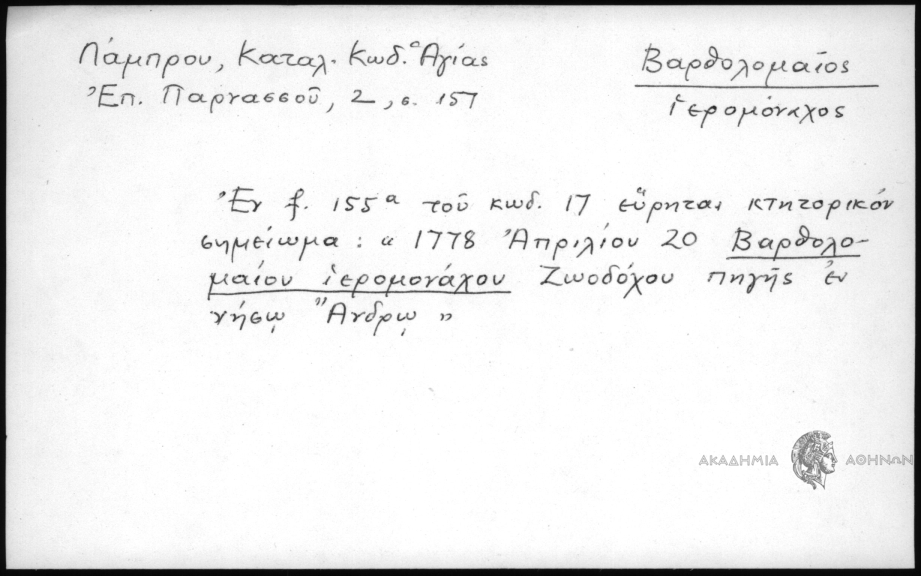 Λάμπρου, Καταλ. Κωδ. Ἁγίας
Ἐπ. Παρνασσοῦ, 2, σ. 157
Βαρθολομαῖος
ἱερομόναχος
Ἐν f. 155α τοῦ κωδ. 17 εὕρηται κτητορικόν
σημείωμα : « 1778 Ἀπριλίου 20 Βαρθολο-
μαίου ἱερομονάχου Ζωοδόχου πηγῆς ἐν
νήσῳ Ἄνδρῳ »
ΑΚΑΔΗΜΙΑ ΑΘΗΝΩΝ